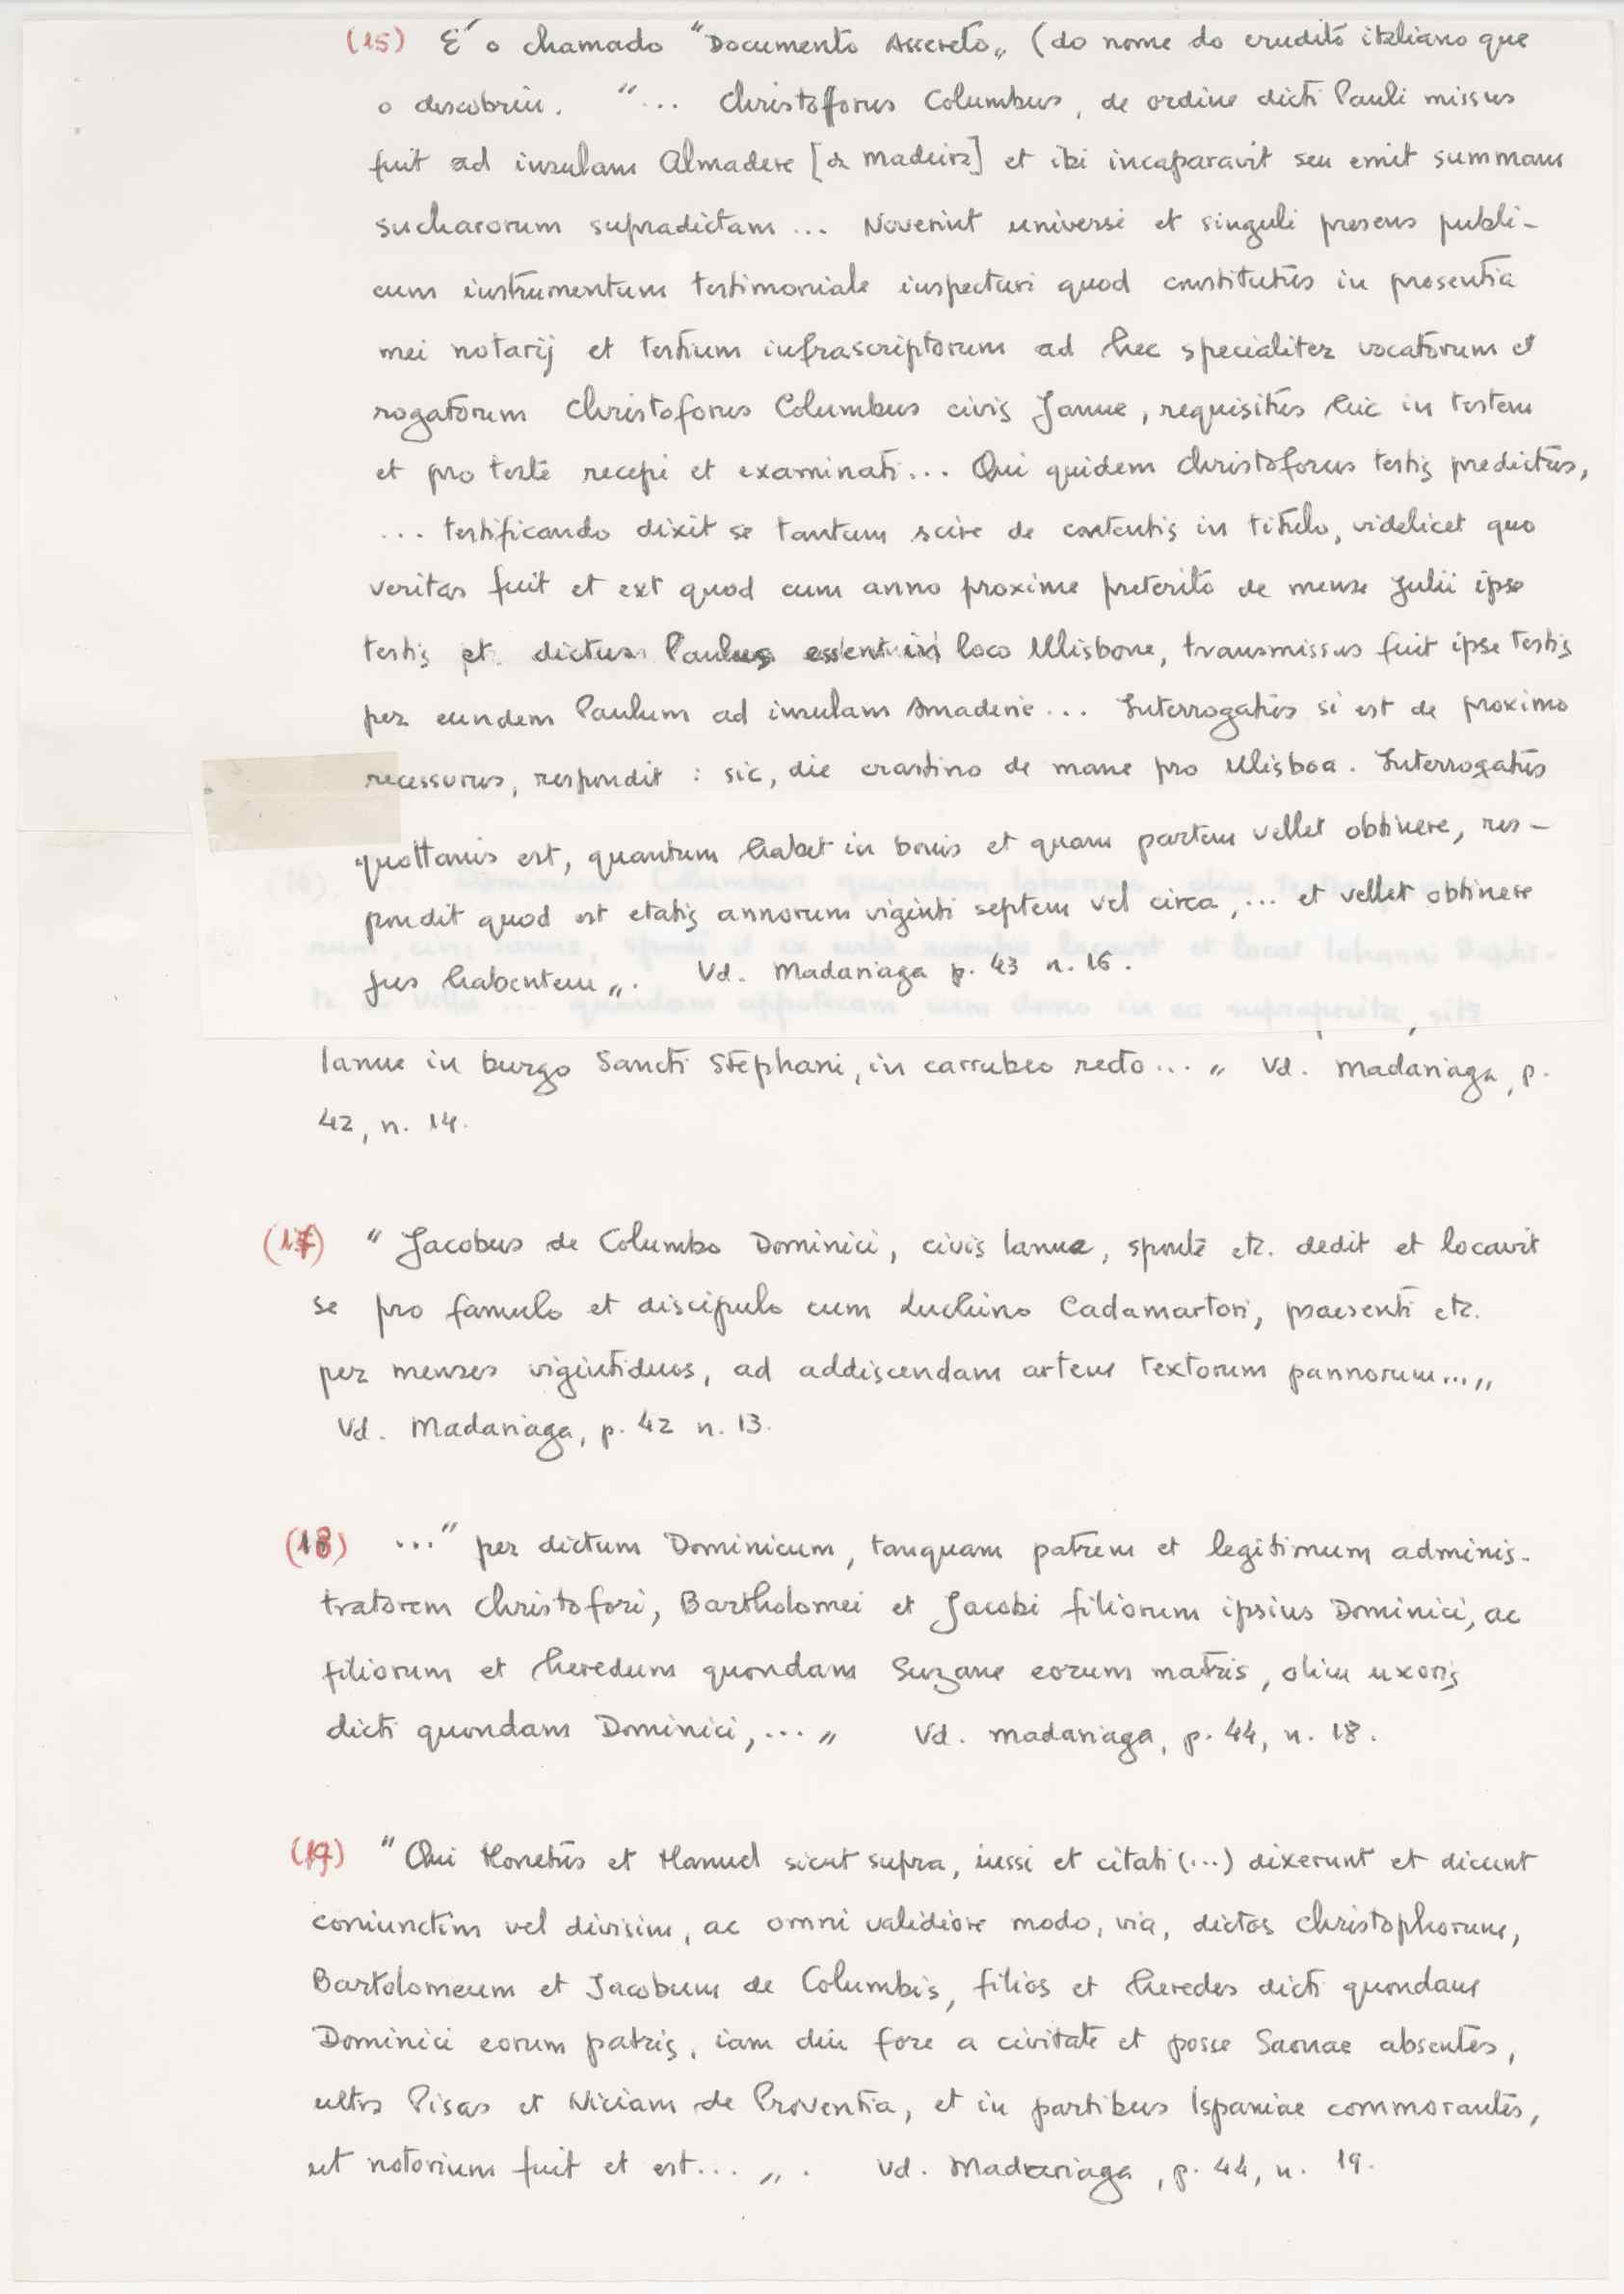 (15) É o chamado "Documento Assereto„ (do nome do erudito italiano que
o descobriu. "... Christofforus Columbus, de ordine dicti Pauli missus
fuit ad insulam Almadere [a Madeira] et ibi incaparavit seu emit summam
sucharorum supradictam... Noverint universi et singuli presens publi-
cum instrumentum testimoniale inspecturi quod constitutus in presentia
mei notarij et testium infrascriptorum ad hec specialiter vocatorum et
rogatorum Christoforus Columbus civis Janue, requisitus hic in testem
et pro teste recepi et examinati... Qui quidem Christoforus testis predictus,
... testificando dixit se tantum scire de contentis in titulo, videlicet quo
veritas fuit et ext quod cum anno proxime preterito de mense Julii ipse
testis et dictus Paulus essent in loco Ulisbone, transmissus fuit ipse testis
per eundem Paulum ad insulam Amaderie... Interrogatus si est de proximo
recessurus, respondit : sic, die crastino de mane pro Ulisboa. Interrogatus
quottanis est, quantum habet in bonis et quam partem vellet obtinere, res-
pondit quod est etatis annorum viginti septem vel circa,... et vellet obtinere
jus habentem„. Vd. Madariaga p. 43 n. 16.
(16). ... Dominicus Columbus quondam Iohannis, olim
te de Villa ... quandam appotecam cum domo in ea supraposita, sita
Ianue in burgo Sancti Stephani, in carrubeo recto...„ Vd. Madariaga, p.
42, n. 14.
(17) "Jacobus de Columbo Dominici, civis Ianue, sponte etc. dedit et locavit
se pro famulo et discipulo cum Luchino Cadamartori, praesenti etc.
per menses vigintiduos, ad addiscendam artem textorum pannorum...„
Vd. Madariaga, p. 42 n. 13.
(18) ..." per dictum Dominicum, tanquam patrem et legitimum adminis-
tratorem Christofori, Bartholomei et Jacobi filiorum ipsius Dominici, ac
filiorum et heredum quondam Suzane eorum matris, olim uxoris
dicti quondam Dominici,...„ Vd. Madariaga, p. 44, n. 18.
(19) "Qui Monetus et Manuel sicut supra, iussi et citati (...) dixerunt et dicunt
coniunctim vel divisim, ac omni validiore modo, via, dictos Christophorum,
Bartolomeum et Jacobum de Columbis, filios et heredes dicti quondam
Dominici eorum patris, iam diu fore a civitate et posse Saonae absentes,
ultra Pisas et Niciam de Proventia, et in partibus Ispaniae commorantes,
ut notorium fuit et est...„. Vd. Madariaga, p. 44, n. 19.